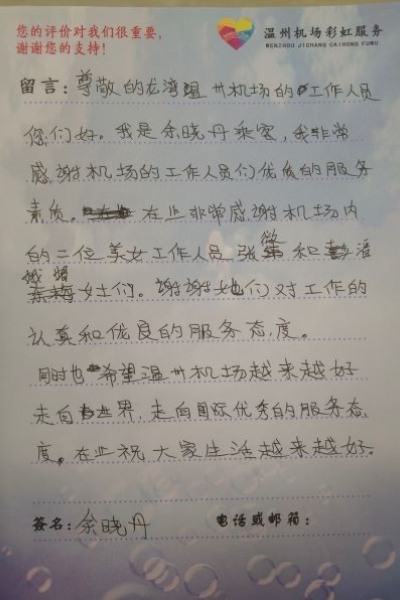 您的评价对我们很重要，
谢谢您的支持！
温州机场彩虹服务
WENZHOU JICHANG CAIHONG FUWU
留言：尊敬的龙湾温州机场的工作人员
您们好。我是余晓丹乘客，我非常
感谢机场的工作人员们优质的服务
素质。在此非常感谢机场内
的二位美女工作人员张 和 潘
女士们。谢谢她们对工作的
认真和优良的服务态度。
同时也希望温州机场越来越好
走向世界，走向国际优秀的服务态
度。在此祝大家生活越来越好。
签名：余晓丹
电话或邮箱：